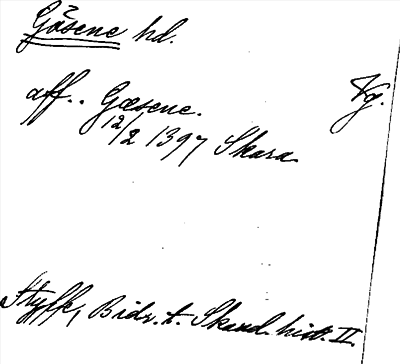 Gäsene hd.
Vg.
aff.. Gæsene.
12/2 1397 Skara
Styffe, Bidr. t. Skand. hist. II